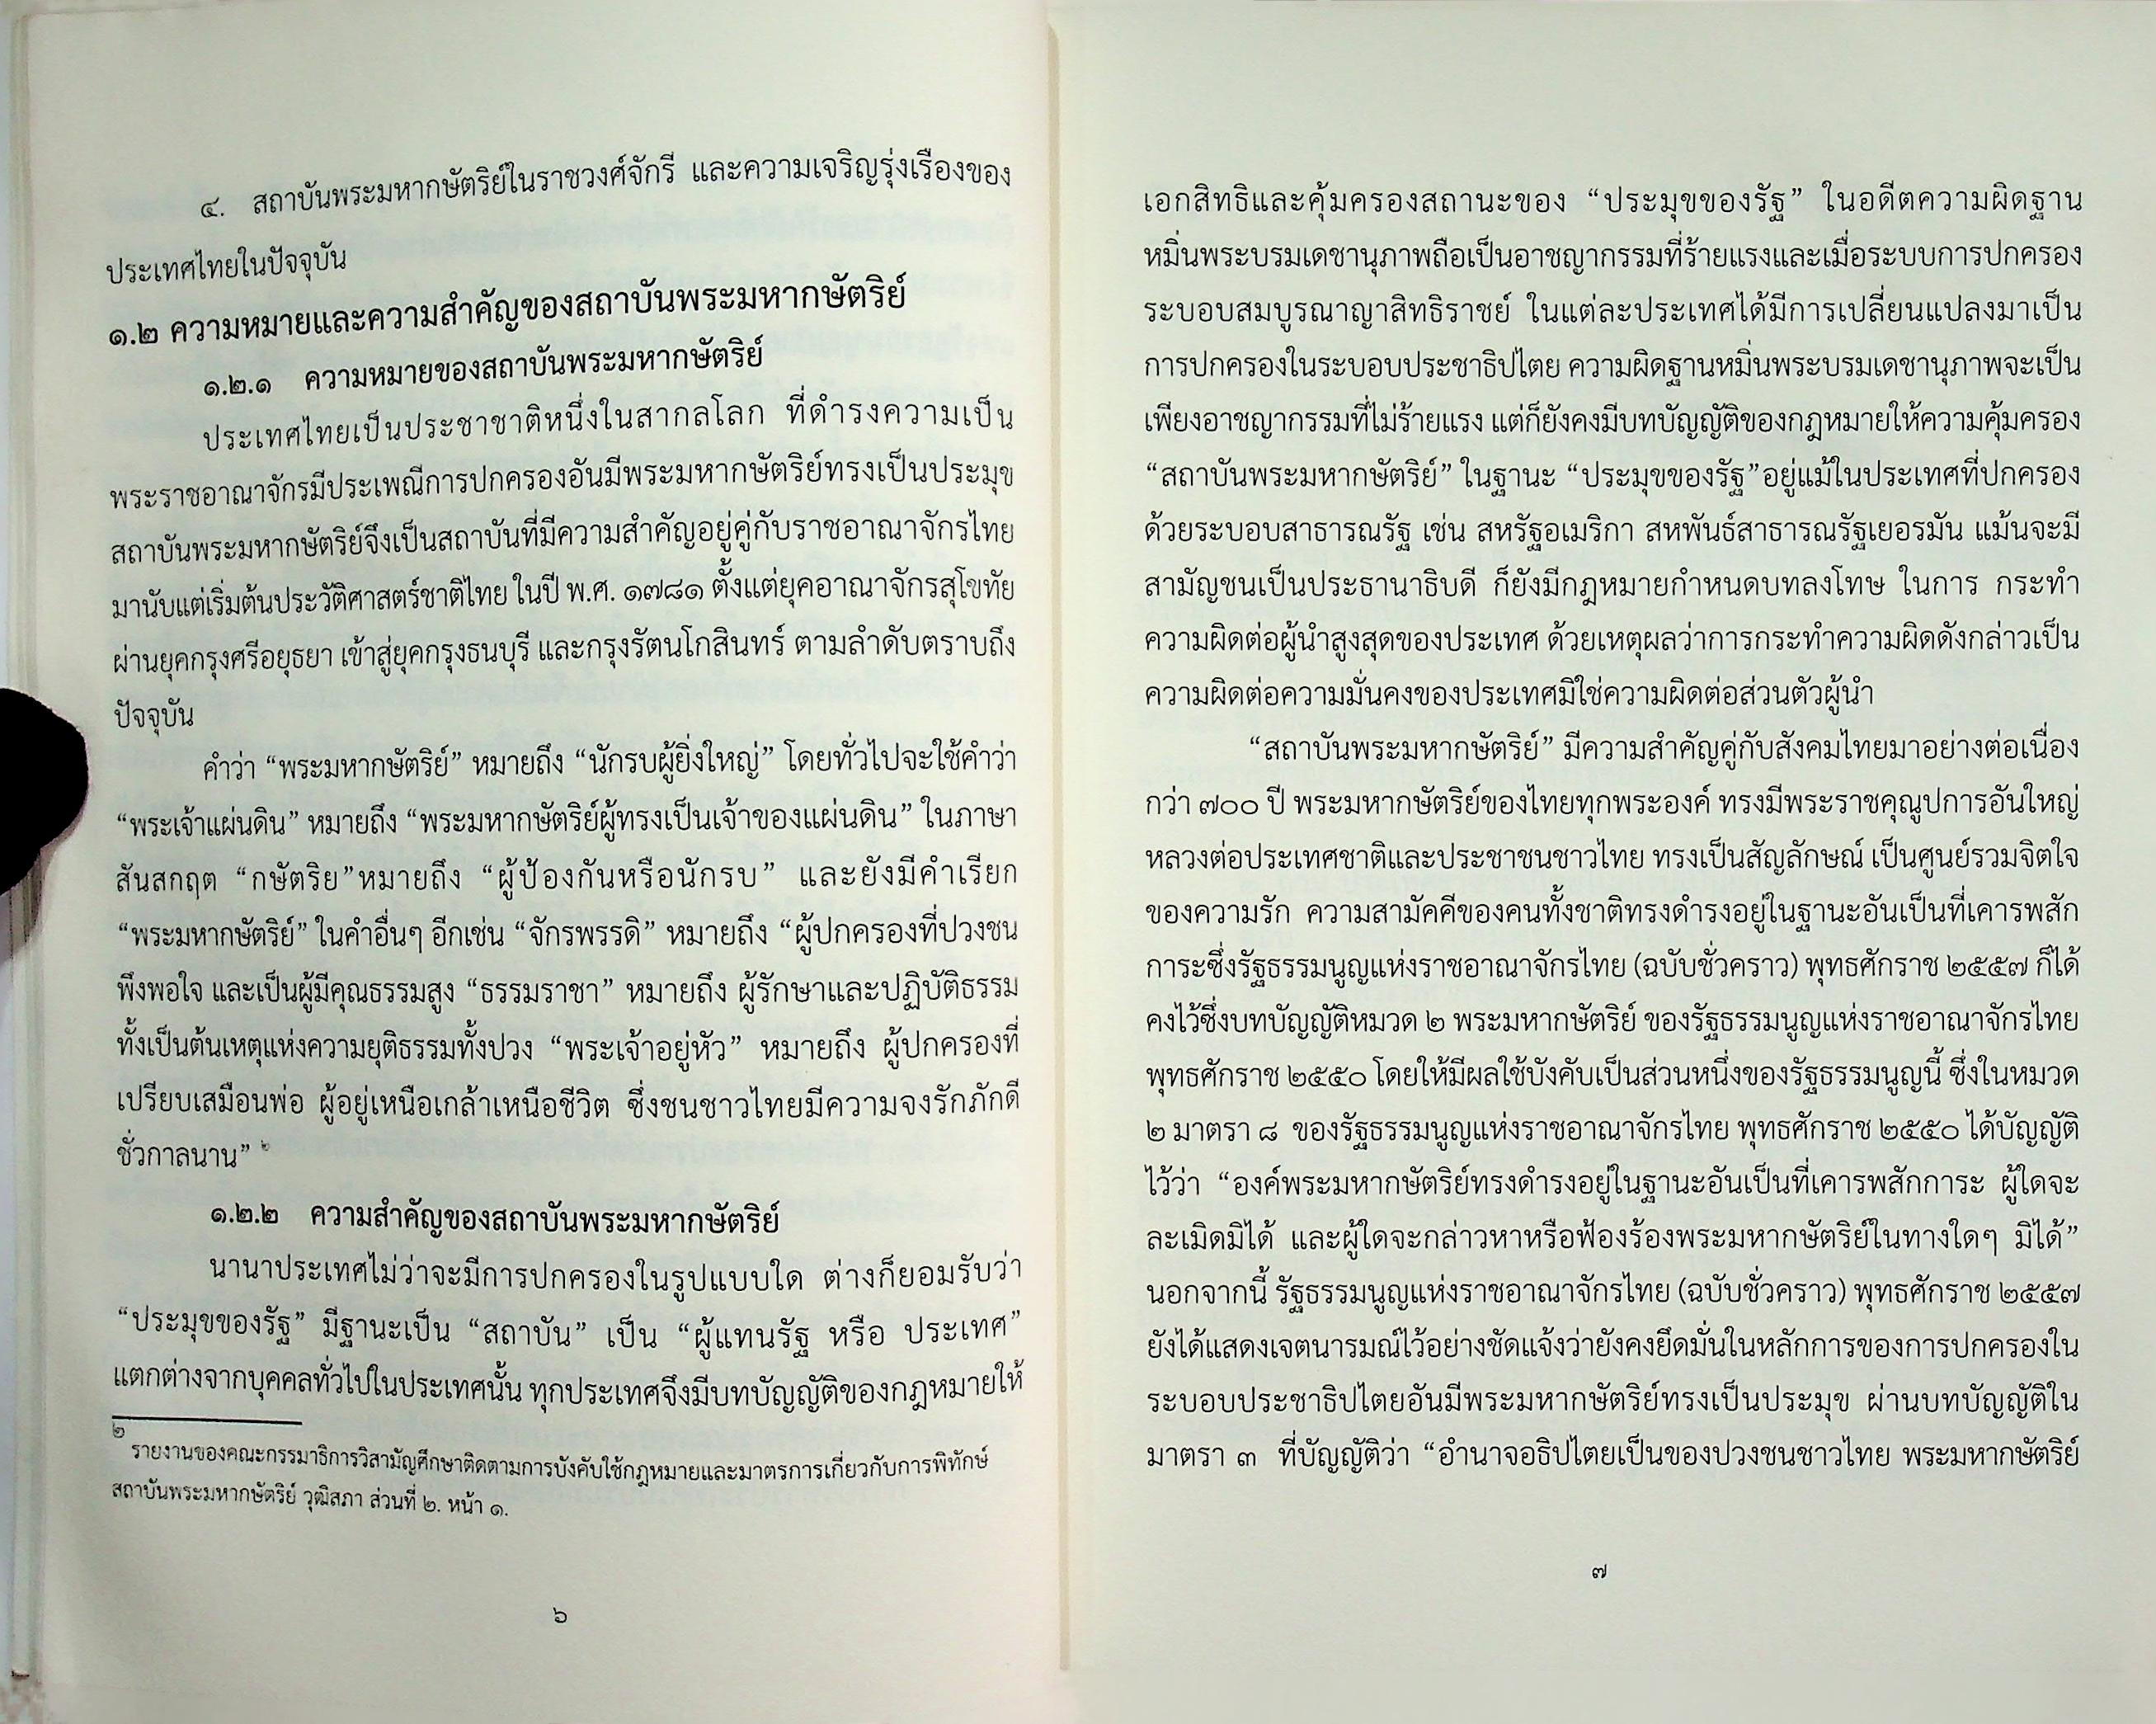 ๔. สถาบันพระมหากษัตริย์ในราชวงศ์จักรี และความเจริญรุ่งเรืองของ
ประเทศไทยในปัจจุบัน
๑.๒ ความหมายและความสำคัญของสถาบันพระมหากษัตริย์
๑.๒.๑ ความหมายของสถาบันพระมหากษัตริย์
ประเทศไทยเป็นประชาชาติหนึ่งในสากลโลก ที่ดำรงความเป็น
พระราชอาณาจักรมีประเพณีการปกครองอันมีพระมหากษัตริย์ทรงเป็นประมุข
สถาบันพระมหากษัตริย์จึงเป็นสถาบันที่มีความสำคัญอยู่คู่กับราชอาณาจักรไทย
มานับแต่เริ่มต้นประวัติศาสตร์ชาติไทย ในปี พ.ศ. ๑๗๘๑ ตั้งแต่ยุคอาณาจักรสุโขทัย
ผ่านยุคกรุงศรีอยุธยา เข้าสู่ยุคกรุงธนบุรี และกรุงรัตนโกสินทร์ ตามลำดับตราบถึง
ปัจจุบัน
คำว่า “พระมหากษัตริย์” หมายถึง “นักรบผู้ยิ่งใหญ่” โดยทั่วไปจะใช้คำว่า
“พระเจ้าแผ่นดิน” หมายถึง “พระมหากษัตริย์ผู้ทรงเป็นเจ้าของแผ่นดิน” ในภาษา
สันสกฤต “กษัตริย”หมายถึง “ผู้ป้องกันหรือนักรบ” และยังมีคำเรียก
“พระมหากษัตริย์” ในคำอื่นๆ อีกเช่น “จักรพรรดิ” หมายถึง “ผู้ปกครองที่ปวงชน
พึงพอใจ และเป็นผู้มีคุณธรรมสูง “ธรรมราชา” หมายถึง ผู้รักษาและปฏิบัติธรรม
ทั้งเป็นต้นเหตุแห่งความยุติธรรมทั้งปวง “พระเจ้าอยู่หัว” หมายถึง ผู้ปกครองที่
เปรียบเสมือนพ่อ ผู้อยู่เหนือเกล้าเหนือชีวิต ซึ่งชนชาวไทยมีความจงรักภักดี
ชั่วกาลนาน” ๒
๑.๒.๒ ความสำคัญของสถาบันพระมหากษัตริย์
นานาประเทศไม่ว่าจะมีการปกครองในรูปแบบใด ต่างก็ยอมรับว่า
“ประมุขของรัฐ” มีฐานะเป็น “สถาบัน” เป็น “ผู้แทนรัฐ หรือ ประเทศ”
แตกต่างจากบุคคลทั่วไปในประเทศนั้น ทุกประเทศจึงมีบทบัญญัติของกฎหมายให้
๒ รายงานของคณะกรรมาธิการวิสามัญศึกษาติดตามการบังคับใช้กฎหมายและมาตรการเกี่ยวกับการพิทักษ์
สถาบันพระมหากษัตริย์ วุฒิสภา ส่วนที่ ๒. หน้า ๑.
๖
เอกสิทธิและคุ้มครองสถานะของ “ประมุขของรัฐ” ในอดีตความผิดฐาน
หมิ่นพระบรมเดชานุภาพถือเป็นอาชญากรรมที่ร้ายแรงและเมื่อระบบการปกครอง
ระบอบสมบูรณาญาสิทธิราชย์ ในแต่ละประเทศได้มีการเปลี่ยนแปลงมาเป็น
การปกครองในระบอบประชาธิปไตย ความผิดฐานหมิ่นพระบรมเดชานุภาพจะเป็น
เพียงอาชญากรรมที่ไม่ร้ายแรง แต่ก็ยังคงมีบทบัญญัติของกฎหมายให้ความคุ้มครอง
“สถาบันพระมหากษัตริย์” ในฐานะ “ประมุขของรัฐ”อยู่แม้ในประเทศที่ปกครอง
ด้วยระบอบสาธารณรัฐ เช่น สหรัฐอเมริกา สหพันธ์สาธารณรัฐเยอรมัน แม้นจะมี
สามัญชนเป็นประธานาธิบดี ก็ยังมีกฎหมายกำหนดบทลงโทษ ในการ กระทำ
ความผิดต่อผู้นำสูงสุดของประเทศ ด้วยเหตุผลว่าการกระทำความผิดดังกล่าวเป็น
ความผิดต่อความมั่นคงของประเทศมิใช่ความผิดต่อส่วนตัวผู้นำ
“สถาบันพระมหากษัตริย์” มีความสำคัญคู่กับสังคมไทยมาอย่างต่อเนื่อง
กว่า ๗๐๐ ปี พระมหากษัตริย์ของไทยทุกพระองค์ ทรงมีพระราชคุณูปการอันใหญ่
หลวงต่อประเทศชาติและประชาชนชาวไทย ทรงเป็นสัญลักษณ์ เป็นศูนย์รวมจิตใจ
ของความรัก ความสามัคคีของคนทั้งชาติทรงดำรงอยู่ในฐานะอันเป็นที่เคารพสัก
การะซึ่งรัฐธรรมนูญแห่งราชอาณาจักรไทย (ฉบับชั่วคราว) พุทธศักราช ๒๕๕๗ ก็ได้
คงไว้ซึ่งบทบัญญัติหมวด ๒ พระมหากษัตริย์ ของรัฐธรรมนูญแห่งราชอาณาจักรไทย
พุทธศักราช ๒๕๕๐ โดยให้มีผลใช้บังคับเป็นส่วนหนึ่งของรัฐธรรมนูญนี้ ซึ่งในหมวด
๒ มาตรา ๘ ของรัฐธรรมนูญแห่งราชอาณาจักรไทย พุทธศักราช ๒๕๕๐ ได้บัญญัติ
ไว้ว่า “องค์พระมหากษัตริย์ทรงดำรงอยู่ในฐานะอันเป็นที่เคารพสักการะ ผู้ใดจะ
ละเมิดมิได้ และผู้ใดจะกล่าวหาหรือฟ้องร้องพระมหากษัตริย์ในทางใดๆ มิได้”
นอกจากนี้ รัฐธรรมนูญแห่งราชอาณาจักรไทย (ฉบับชั่วคราว) พุทธศักราช ๒๕๕๗
ยังได้แสดงเจตนารมณ์ไว้อย่างชัดแจ้งว่ายังคงยึดมั่นในหลักการของการปกครองใน
ระบอบประชาธิปไตยอันมีพระมหากษัตริย์ทรงเป็นประมุข ผ่านบทบัญญัติใน
มาตรา ๓ ที่บัญญัติว่า “อำนาจอธิปไตยเป็นของปวงชนชาวไทย พระมหากษัตริย์
๗